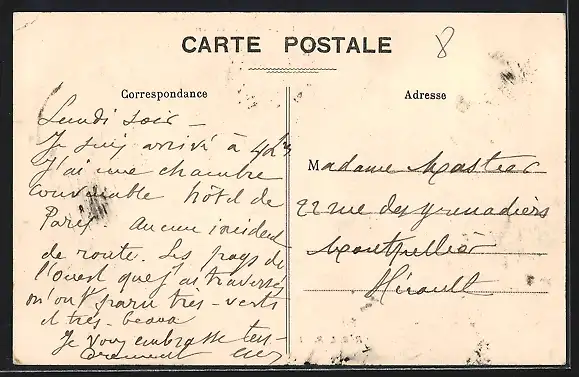 CARTE POSTALE
8
Correspondance
Lundi soir –
Je suis arrivé à 4h
J'ai une chambre
convenable hôtel de
Paris Aucun incident
de route. Les pays de
l'ouest que j'ai traversés
m'ont paru très-verts
et très-beaux
Je vous embrasse ten-
drement
Adresse
Madame
22 rue des grenadiers
Montpellier
Hérault